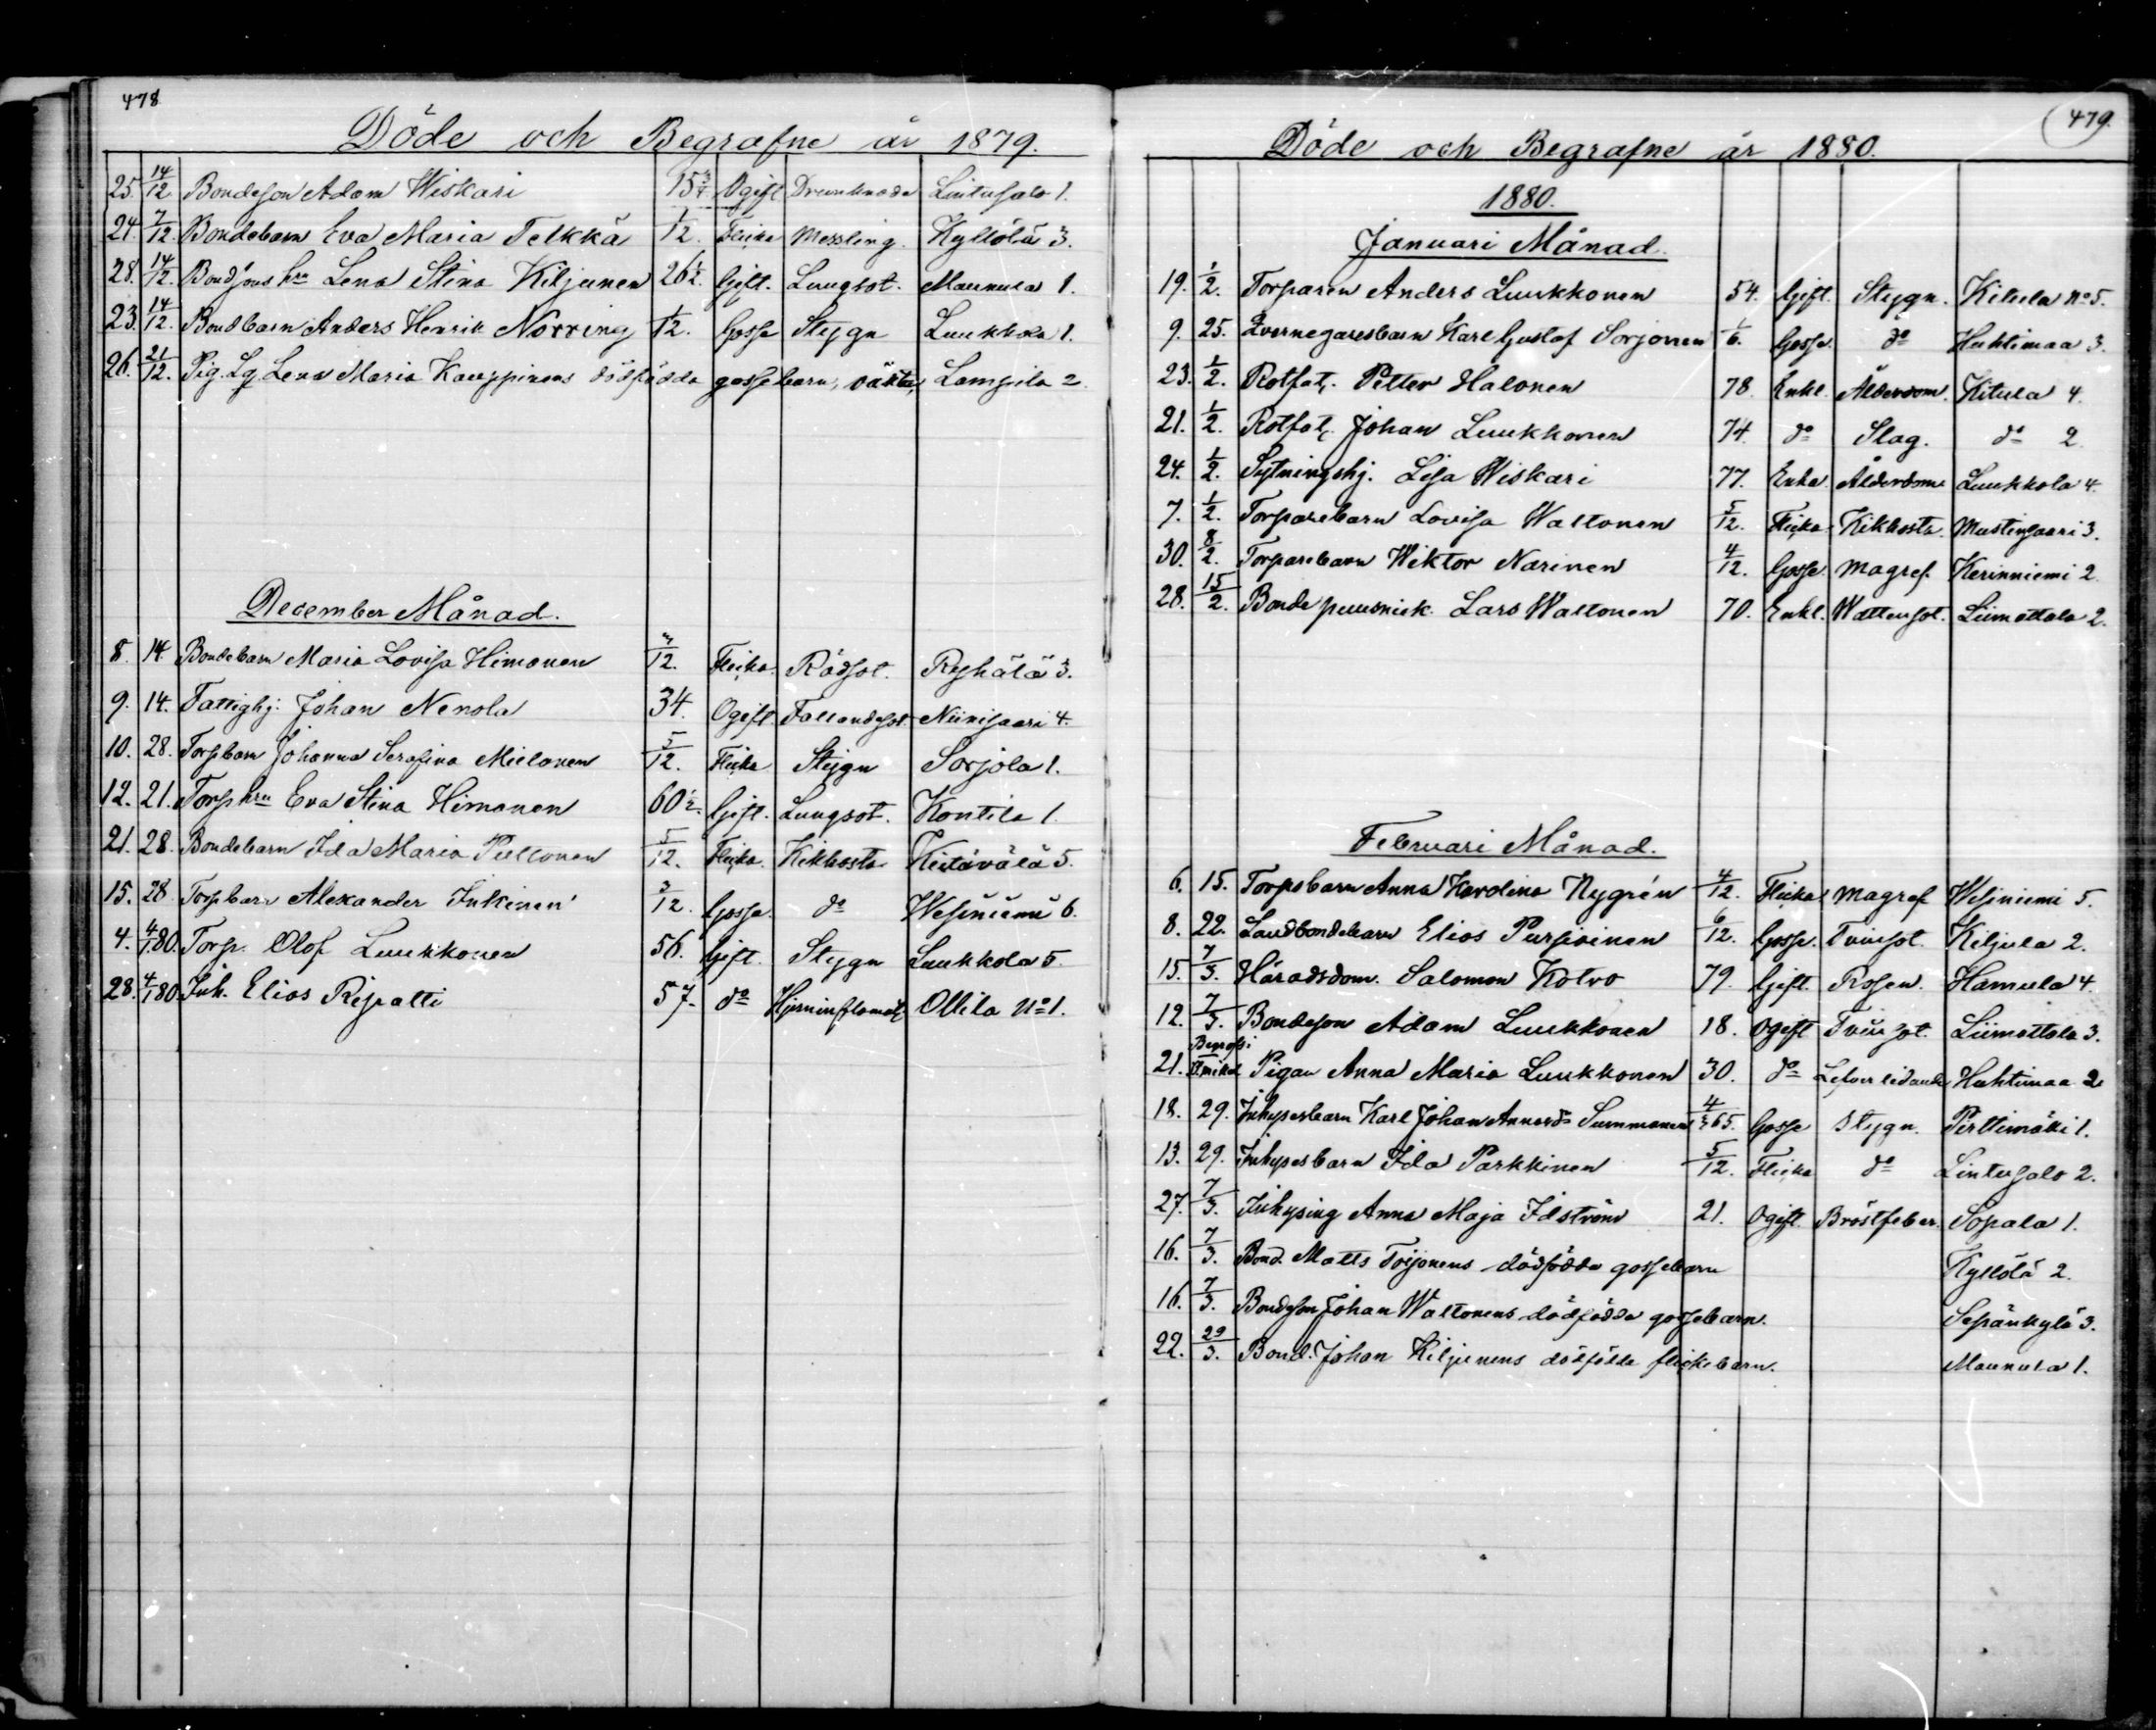 478
Döde och Begrafne år 1879.
25. 14/12 Bondeson Adam Wiskari 15 3/4 Ogift Drunknade Lintusalo 1.
24. 7/12. Bondebarn Eva Maria Telkkä 1/12. Flicka Messling. Kyllölä 3.
28. 14/12. Bondsons hru Lena Stina Kiljunen 26 1/2. Gift. Lungsot. Maunula 1.
23. 14/12. Bondbarn Anders Henrik Norring 1/12. Gosse Stygn Luukkola 1.
26. 21/12. Pig. Lg Lena Maria Kauppinens dödfödda gossebarn, oäkta, Lampila 2.
December Månad.
8. 14. Bondebarn Maria Lovisa Himonen 3/12. Flicka Rödsot. Reshälä 3.
9. 14. Fattighj. Johan Nenola 34. Ogift. Fallandesot Niinisaari 4.
10. 28. Torpbarn Johanna Serafina Mielonen 5/12. Flicka Stygn Sorjola 1.
12. 21. Torp hru Eva Stina Himonen 60 1/2. Gift. Lungsot. Kontila 1.
21. 28. Bondebarn Ida Maria Pultonen 5/12. Flicka. Kikhosta Keitävälä 5.
15. 28 Torpbarn Alexander Inkinen 3/12. Gosse. do Wesiniemi 6.
4. 4/1 80. Torp. Olof Luukkonen 56. Gift. Stygn Luukkola 5.
28. 4/1 80. Inh. Elias Ripatti 57. do Hjerninflamat. Ollila No 1.
479.
Döde och Begrafne år 1880.
1880.
Januari Månad.
19. 1/2. Torparen Anders Luukkonen 54. Gift. Stygn. Kitula No 5.
9. 25. Qvarnegaresbarn Karl Gustaf Sorjonen 1/6. Gosse. do Huhtimaa 3.
23. 1/2. Rotfat. Petter Halonen 78. Enkl. Ålderdom. Kitula 4.
21. 1/2. Rotfat. Johan Luukkonen 74. do Slag. do 2.
24. 1/2. Sytningshj. Lisa Wiskari 77. Enka. Ålderdom Luukkola 4.
7. 1/2. Torparebarn Lovisa Waltonen 5/12. Flicka Kikhosta. Mustinsaari 3.
30. 8/2. Torparebarn Wiktor Narinen 4/12. Gosse. Magref. Kerinniemi 2.
28. 15/2. Bonde puusniek. Lars Waltonen 70. Enkl. Wattensot. Liimattala 2.
Februari Månad.
6. 15. Torpsbarn Anna Karolina Nygrén 4/12. Flicka Magref Wesiniemi 5.
8. 22. Landbondebarn Elias Pursiainen 6/12. Gosse. Tvinsot. Kiljula 2.
15. 7/3. Häradsdom. Salomon Kolvo 79. Gift. Rosen. Hamula 4.
12. 7/3. Bondeson Adam Luukkonen 18. Ogift Tvinsot. Liimattala 3.
21. Begrafs i St. Mikel Pigan Anna Maria Luukkonen 30. do Lefverlidande Huhtimaa 2.
18. 29. Inhysesbarn Karl Johan Summanen Gosse Stygn. Perttimäki 1.
13. 29. Inhysesbarn Ida Parkkinen 5/12. Flicka do Lintusalo 2.
27. 7/3. Inhysing Anna Maja Idström 21. Ogift Bröstfeber. Sopala 1.
16. 7/3. Bond. Matts Toijonens dödfödda gossebarn Kyllölä 2.
16. 7/3. Bondeson Johan Waltonens dödfödda gossebarn. Sepänkylä 3.
22. 29/3. Bond. Johan Kiljunens dödfödda flickebarn. Maunula 1.